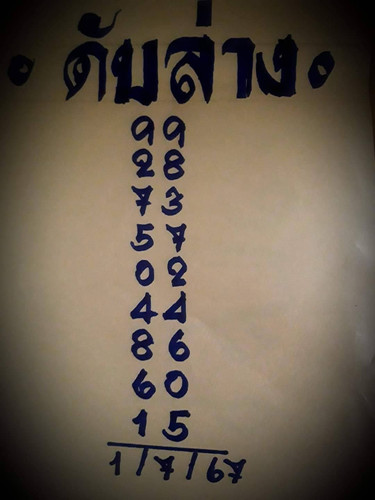 • ดับล่าง •
99
28
73
57
02
44
86
60
15
1/7/67